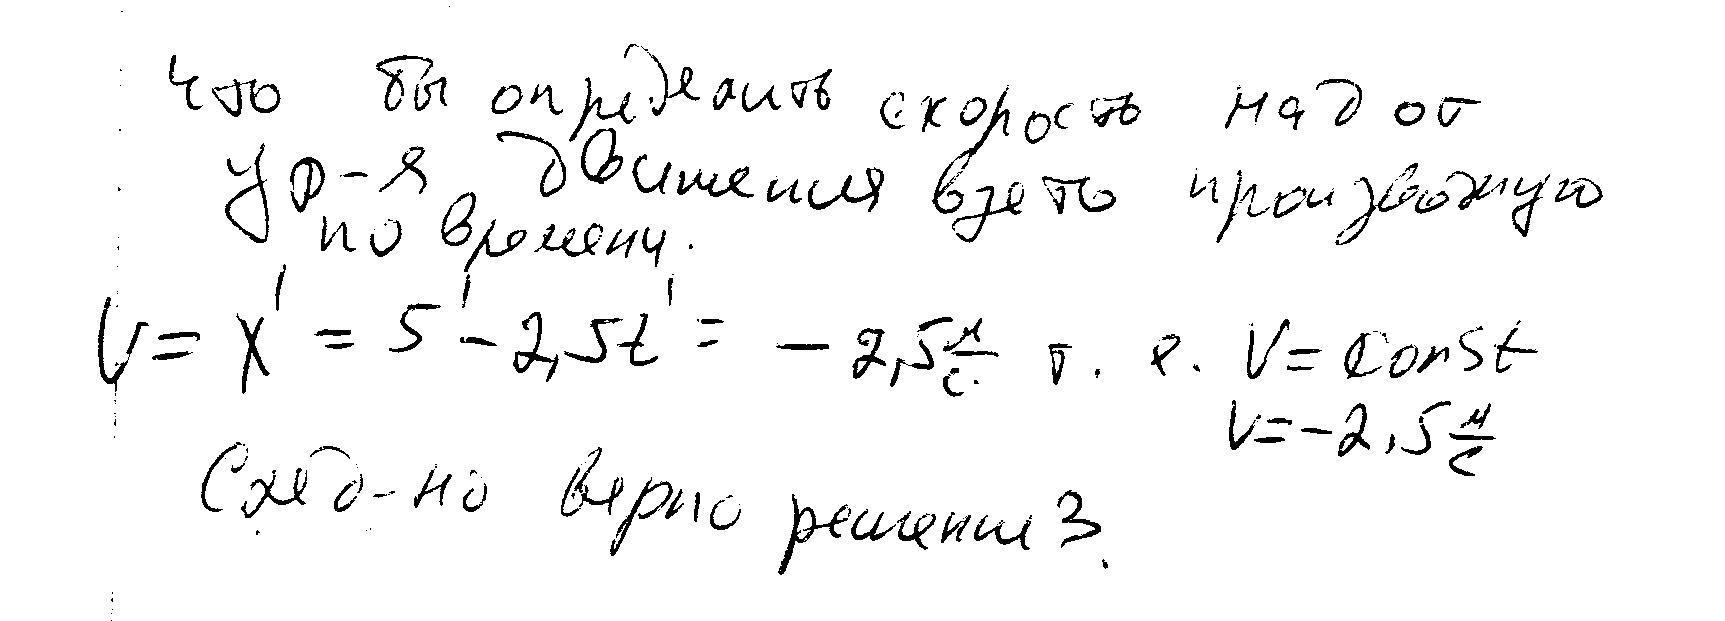 Что бы определить скорость над от
ур-я движения взеть производную
по времени.
V = x' = 5' - 2,5t' = - 2,5 м/с т. е. V = const
V = - 2,5 м/с
След-но верно решение 3.